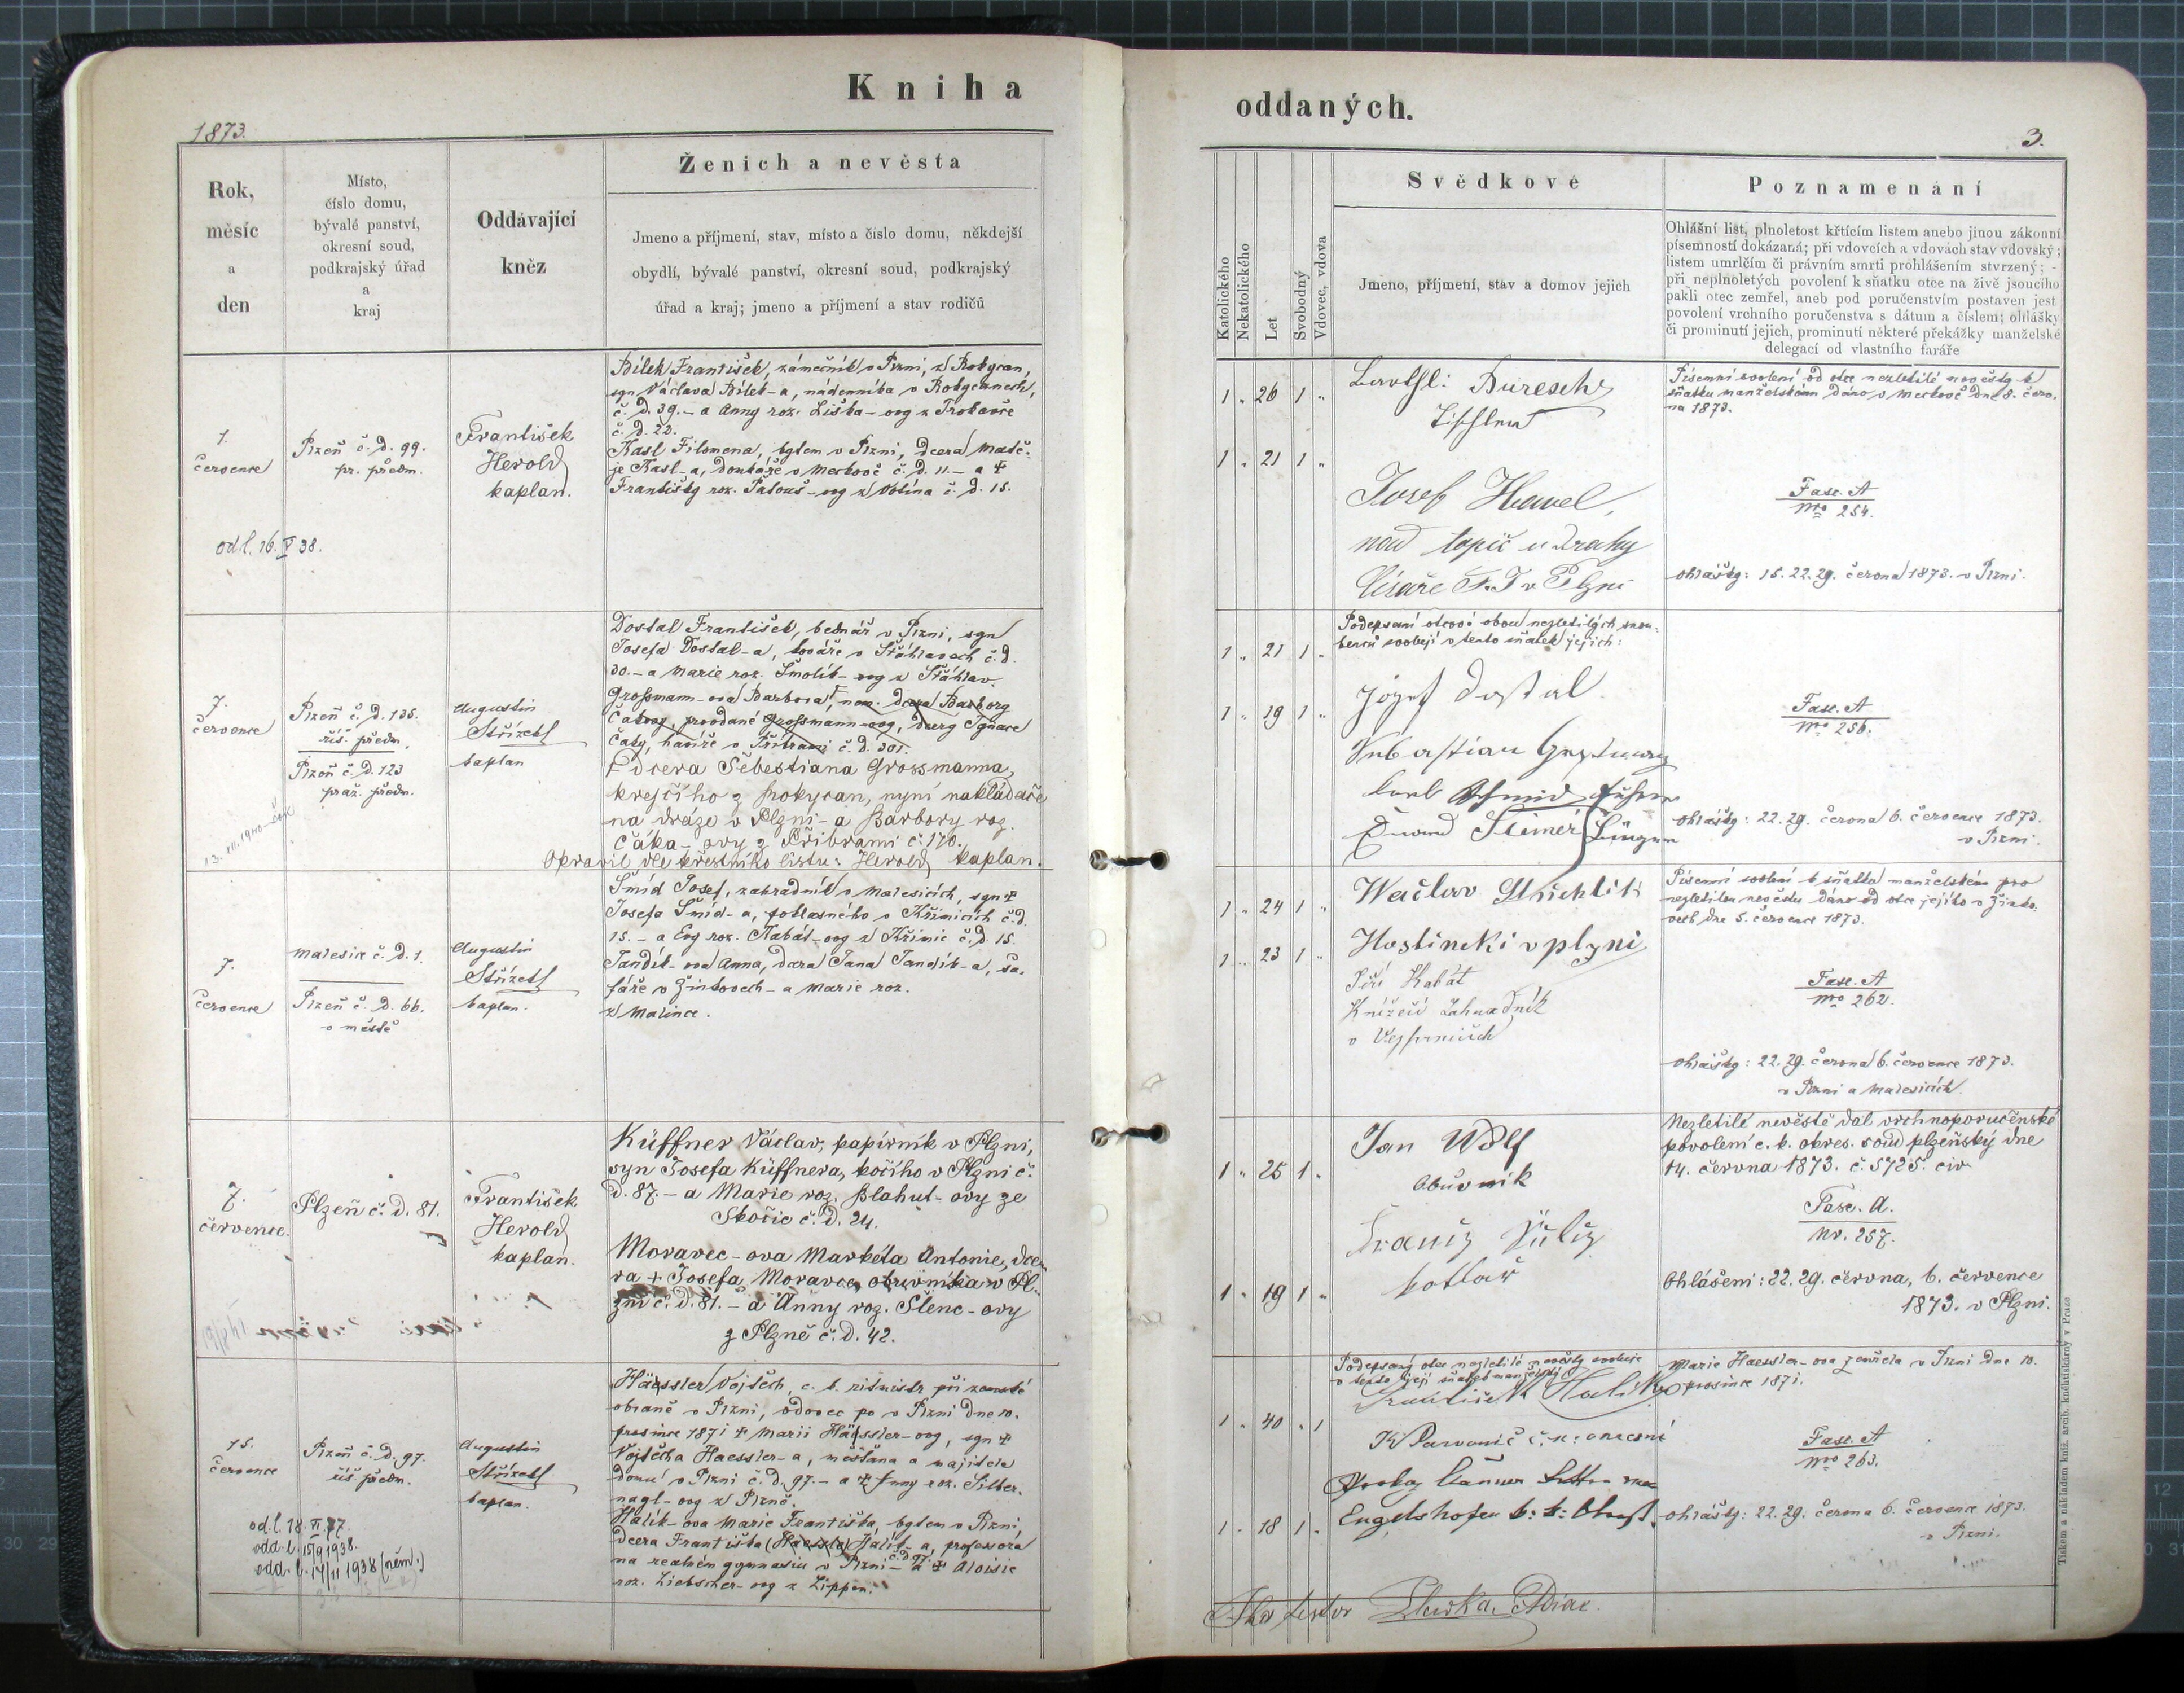 Kniha
1873.
Rok,
měsíc
a
den
Místo,
číslo domu,
bývalé panství,
okresní soud,
podkrajský úřad
a
kraj
Oddávající
kněz
Ženich a nevěsta
Jmeno a příjmení, stav, místo a číslo domu, někdejší
obydlí, bývalé panství, okresní soud, podkrajský
úřad a kraj; jmeno a příjmení a stav rodičů
1.
července
Plzeň č. d. 99.
pr. předm.
František
Herold
kaplan.
Bílek František, zámečník v Plzni, z Rokycan,
syn Václava Bílek-a, nádenníka v Rokycanech,
č. d. 39. - a Anny roz. Liška-ovy z
č. d. 22.
Kasl Filomena, bytem v Plzni, dcera Matě-
je Kasl-a, v č. d. 11. - a †
Františky roz. Palouš-ovy z Volína č. d. 15.
odl. 16. V 38.
7.
července
Plzeň č. d. 135.
říš. předm.
Plzeň č. d. 123
praž. předm.
Augustin
Střízek
kaplan
Dostal František, bednář v Plzni, syn
Josefa Dostal-a, kováře v Šťáhlavech č. d.
30. - a Marie roz. Smolík-ovy z Šťáhlav.
Grossmann-ova Barbora, nem. dcera Barbory
Čákovy, provdané Grossmann-ovy, dcery Ignace
Čáky, havíře v Příbrami č. d. 301.
dcera Šebestiana Grossmanna,
krejčího z Rokycan, nyní nakládače
na dráze v Plzni - a Barbory roz.
Čáka-ovy z Příbrami č. 170.
Opravil dle křestního listu: Herold kaplan.
13. XII. 1940
7.
července
Malesice č. d. 1.
Plzeň č. d. 66.
v městě
Augustin
Střízek
kaplan.
Šmíd Josef, zahradník v Malesicích, syn †
Josefa Šmíd-a, v Křimicích č. d.
15. - a Evy roz. Kabát-ovy z Křimic č. d. 15.
Jandík-ova Anna, dcera Jana Jandík-a, ša-
fáře v Žinkovech - a Marie roz.
z Malince.
7.
července.
Plzeň č. d. 81.
František
Herold
kaplan.
Küffner Václav, papírník v Plzni,
syn Josefa Küffnera, kočího v Plzni č.
d. 87. - a Marie roz. Blahut-ovy ze
Skořic č. d. 24.
Moravec-ova Markéta Antonie, dce-
ra + Josefa Moravce, obuvníka v Pl-
zni č. d. 81. - a Anny roz. Šlenc-ovy
z Plzně č. d. 42.
15.
července
Plzeň č. d. 97.
říš. předm.
Augustin
Střízek
kaplan.
Häessler Vojtěch, c. k. ritmistr při zemské
obraně v Plzni, vdovec po v Plzni dne 10.
prosince 1871 † Marii Häessler-ovy, syn †
Vojtěcha Haessler-a, měšťana a majitele
domu v Plzni č. d. 97. - a † Anny roz. Silber-
nagl-ovy z Plzně.
Halík-ova Marie Františka, bytem v Plzni,
dcera Františka (Haessler) Halík-a, professora
na realném gymnasiu v Plzni č. d. 97. - a † Aloisie
roz. Liebscher-ovy z Lippen.
od. l. 18. VI. 37.
odd. l. 15/9 1938.
odd. l. 14/11 1938 (něm.)
oddaných.
3.
Katolického
Nekatolického
Let
Svobodný
Vdovec, vdova
Svědkové
Jmeno, příjmení, stav a domov jejich
Poznamenání
Ohlášní list, plnoletost křtícím listem anebo jinou zákonní
písemností dokázaná; při vdovcích a vdovách stav vdovský;
listem umrlčím či právním smrti prohlášením stvrzený; -
při neplnoletých povolení k sňatku otce na živě jsoucího
pakli otec zemřel, aneb pod poručenstvím postaven jest
povolení vrchního poručenstva s dátum a číslem; ohlášky
či prominutí jejich, prominutí některé překážky manželské
delegací od vlastního faráře
1 " 26 1 "
1 " 21 1 "
Buresch
Tischler
Josef Hawel,
topič u drahy
Císaře F. J. v Plzni
Písemní svolení od otce nezletilé nevěsty k
sňatku manželském dáno v dne 8. červ-
na 1873.
Fasc. A
nro 254.
ohlášky: 15. 22. 29. června 1873. v Plzni.
1 " 21 1 "
1 " 19 1 "
Podepsaní otcové obou nezletilých snou-
benců svolují v tento sňatek jejich:
Jozef Dostal
Karl Schmid
Steiner
Fasc. A
nro 256.
ohlášky: 22. 29. června 6. července 1873.
v Plzni.
1 " 24 1 "
1 " 23 1 "
Wačlav
Hostinski v plzni
Jiří Kabát
Knížecí Zahradník
v Vejprnicích
Písemní svolení k sňatku manželském pro
nezletilou nevěstu dáno od otce jejího v Žinko-
vech dne 5. července 1873.
Fasc. A
nro 262.
ohlášky: 22. 29. června 6. července 1873.
v Plzni a Malesicích.
1 " 25 1 "
1 " 19 1 "
Jan Wolf
Obuvník
kotlař
Nezletilé nevěstě dal vrchnoporučenské
povolení c. k. okres. soud plzeňský dne
14. června 1873. č. 5725. civ.
Fasc. A.
Nr. 257.
Ohlášení: 22. 29. června, 6. července
1873. v Plzni.
1 " 40 " 1
1 " 18 1 "
Podepsaný otec nezletilé nevěsty svoluje
v tento její sňatek manželský
František Halík
Engelshofen k: k: Oberst.
Marie Haessler-ova zemřela v Plzni dne 10.
prosince 1871.
Fasc. A
nro 263.
ohlášky: 22. 29. června 6. července 1873.
v Plzni.
Tiskem a nákladem kníž. arcib. kněhtiskárny v Praze